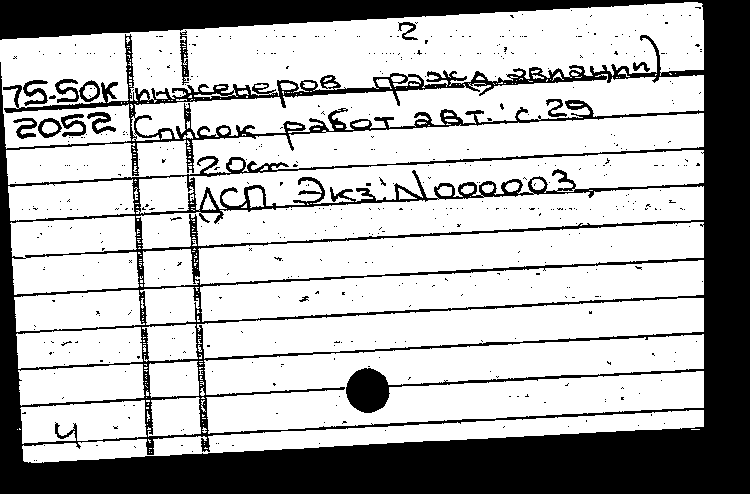 2
75-50К инженеров гражд. авиации)
2052 Список работ авт.: с. 29
20 cm.
ДСП. Экз. N 000003.
4